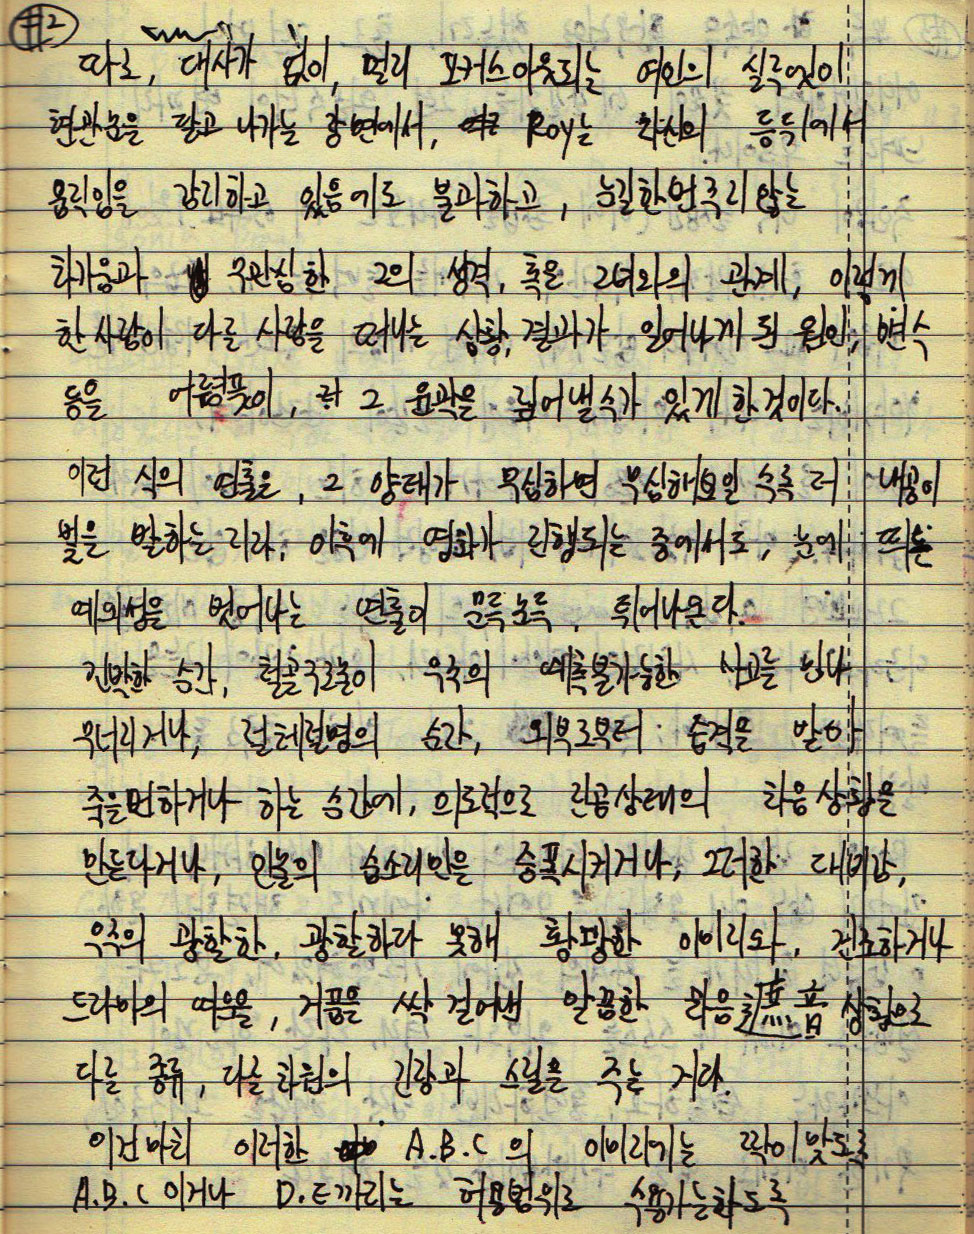 #2
따로, 대사가 없이, 멀리 포커스아웃되는 여인의 실루엣이
현관문을 닫고 나가는 장면에서, Roy는 자신의 등뒤에서
움직임을 감지하고 있음에도 불과하고, 눈길한번주지않는
차가움과 무관심한 그의 성격, 혹은 그녀와의 관계, 이렇게
한 사람이 다른 사람을 떠나는 상황, 결과가 일어나게 된 원인, 변수
등을 어렴풋이, 그 윤곽을 짚어낼수가 있게 한것이다.
이런 식의 연출은, 그 양태가 무심하면 무심해보일 수록 더 내공이
빛을 발하는 지라, 이후에 영화가 진행되는 중에서도, 눈에 띄는
예외성을 벗어나는 연출이 문득문득, 튀어나온다.
긴박한 순간, 철골구조물이 우주의 예측불가능한 사고를 만나
무너지거나, 절체절명의 순간, 외부로부터 충격을 받아
죽을뻔하거나 하는 순간에, 의도적으로 진공상태의 차음상황을
만든다거나, 인물의 숨소리만을 증폭시키거나, 그러한 대비감,
우주의 광활한, 광활하다 못해 황망한 이미지와, 건조하거나
드라마의 여운을, 거품을 싹 걷어낸 말끔한 무음無音 상황으로
다른 종류, 다른 차원의 긴장과 스릴을 주는 거다.
이건마치 이러한 A.B.C의 이미지기는 짝이맞도록
A.B.C이거나 D.E까지는 허용범위로 수용가능하도록